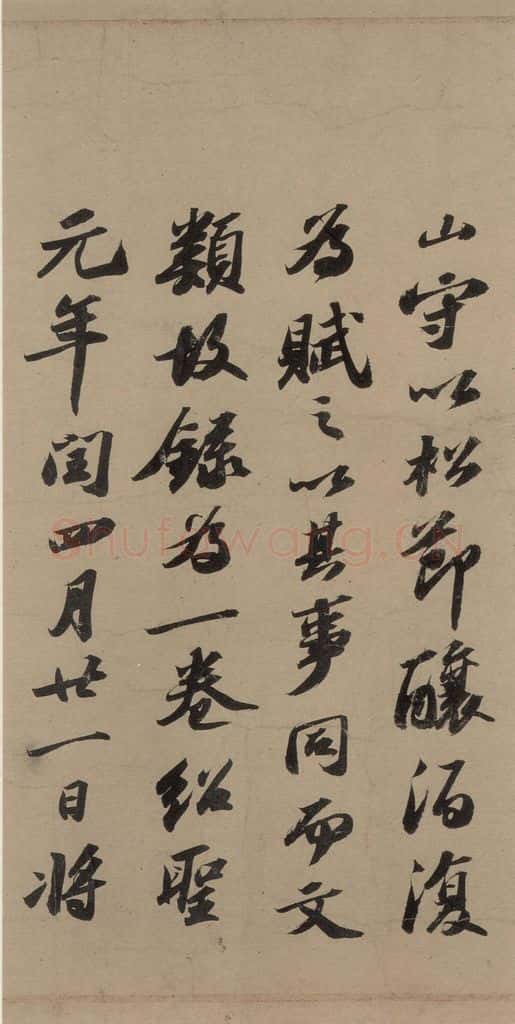 山守以松節釀酒復
為賦之以其事同而文
類故録為一卷紹聖
元年閏四月廿一日將
Shufawang.CN